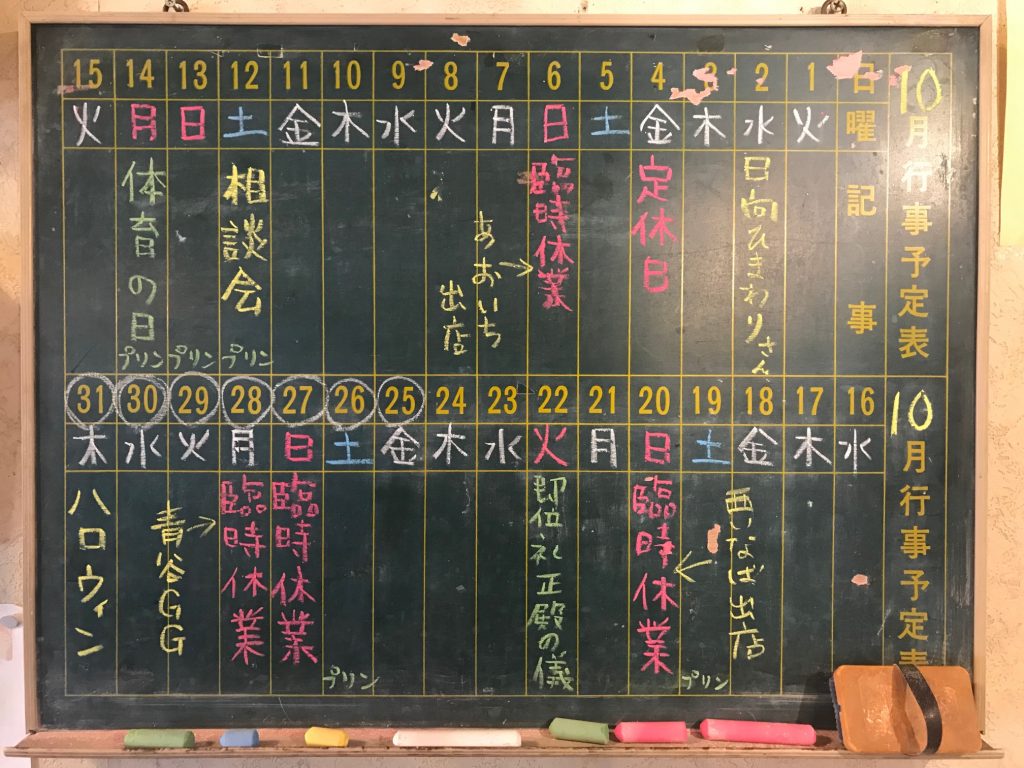 10月行事予定表
日 曜 記事
1 火
2 水 日向ひまわりさん
3 木
4 金 定休日
5 土
6 日 臨時休業
7 月 あおいち →
8 火 出店
9 水
10 木
11 金
12 土 相談会 プリン
13 日 プリン
14 月 体育の日 プリン
15 火
10月行事予定表
16 水
17 木
18 金 西いなば出店
19 土 ← プリン
20 日 臨時休業
21 月
22 火 即位礼正殿の儀
23 水
24 木
25 金
26 土 プリン
27 日 臨時休業
28 月 臨時休業
29 火 青谷GG →
30 水
31 木 ハロウィン